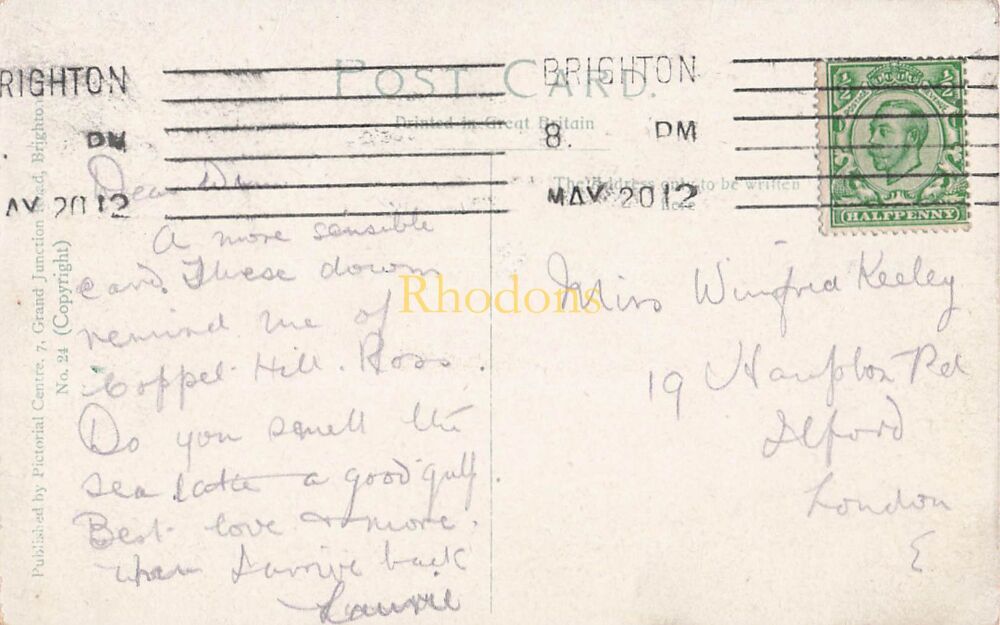 RIGHTON
PM
AY 20 12
BRIGHTON
8. PM
MAY 20 12
POST CARD.
Printed in Great Britain
The Address only to be written
here
½ ½
HALFPENNY
Published by Pictorial Centre, 7, Grand Junction Road, Brighton
No. 24 (Copyright)
Rhodons
Dear
A more sensible
card. These downs
remind me of
Coppet Hill. Ross.
Do you smell the
sea take a good gulf.
Best love & more.
when I arrive back
Laurie
Miss Winifred Keeley
19 Hampton Rd
Ilford
London
E